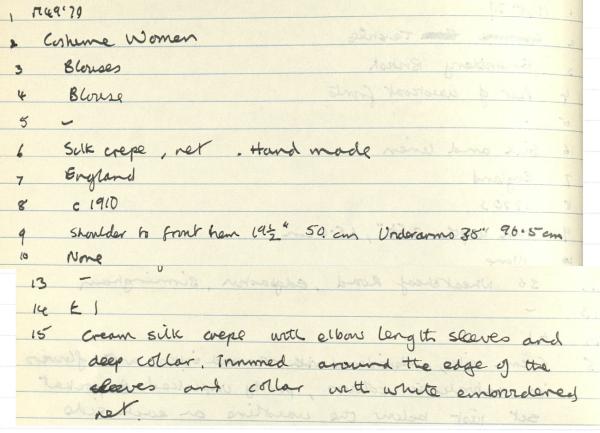 1 M49'79
2 Costume Women
3 Blouses
4 Blouse
5 -
6 Silk crepe, net. Hand made
7 England
8 c 1910
9 Shoulder to front hem 19½" 50 cm Underarms 38" 96.5 cm
10 None
13 -
14 £1
15 Cream silk crepe with elbow length sleeves and
deep collar. Trimmed around the edge of the
sleeves and collar with white embroidered
net.